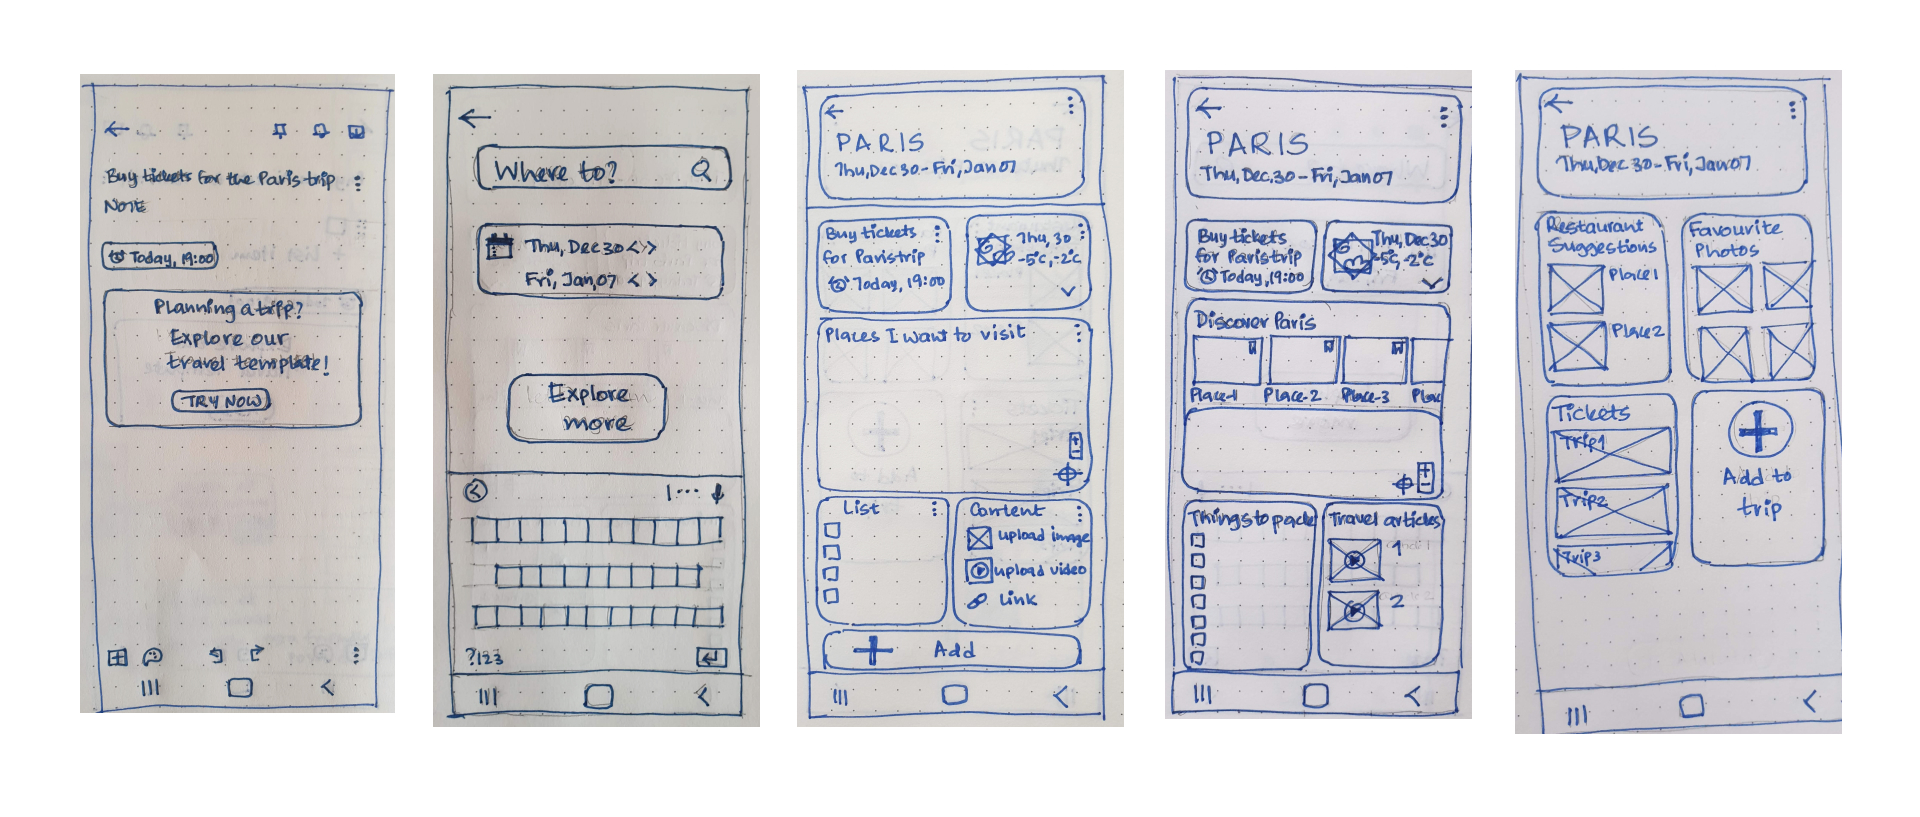 Buy tickets for the Paris trip
NOTE
Today, 19:00
Planning a trip?
Explore our
travel template!
TRY NOW
Where to?
Thu, Dec 30 < >
Fri, Jan, 07 < >
Explore
more
?123
PARIS
Thu, Dec 30 - Fri, Jan 07
Buy tickets
for Paris trip
Today, 19:00
Thu, 30
-5°c, -2°c
Places I want to visit
List
Content
upload image
upload video
Link
+ Add
PARIS
Thu, Dec. 30 - Fri, Jan 07
Buy tickets
for Paris trip
Today, 19:00
Thu, Dec 30
-5°c, -2°c
Discover Paris
Place-1 Place-2 Place-3 Plac
Things to pack
Travel articles
1
2
PARIS
Thu, Dec 30 - Fri, Jan 07
Restaurant
Suggestions
Place 1
Place 2
Favourite
Photos
Tickets
Trip1
Trip2
Trip3
Add to
trip